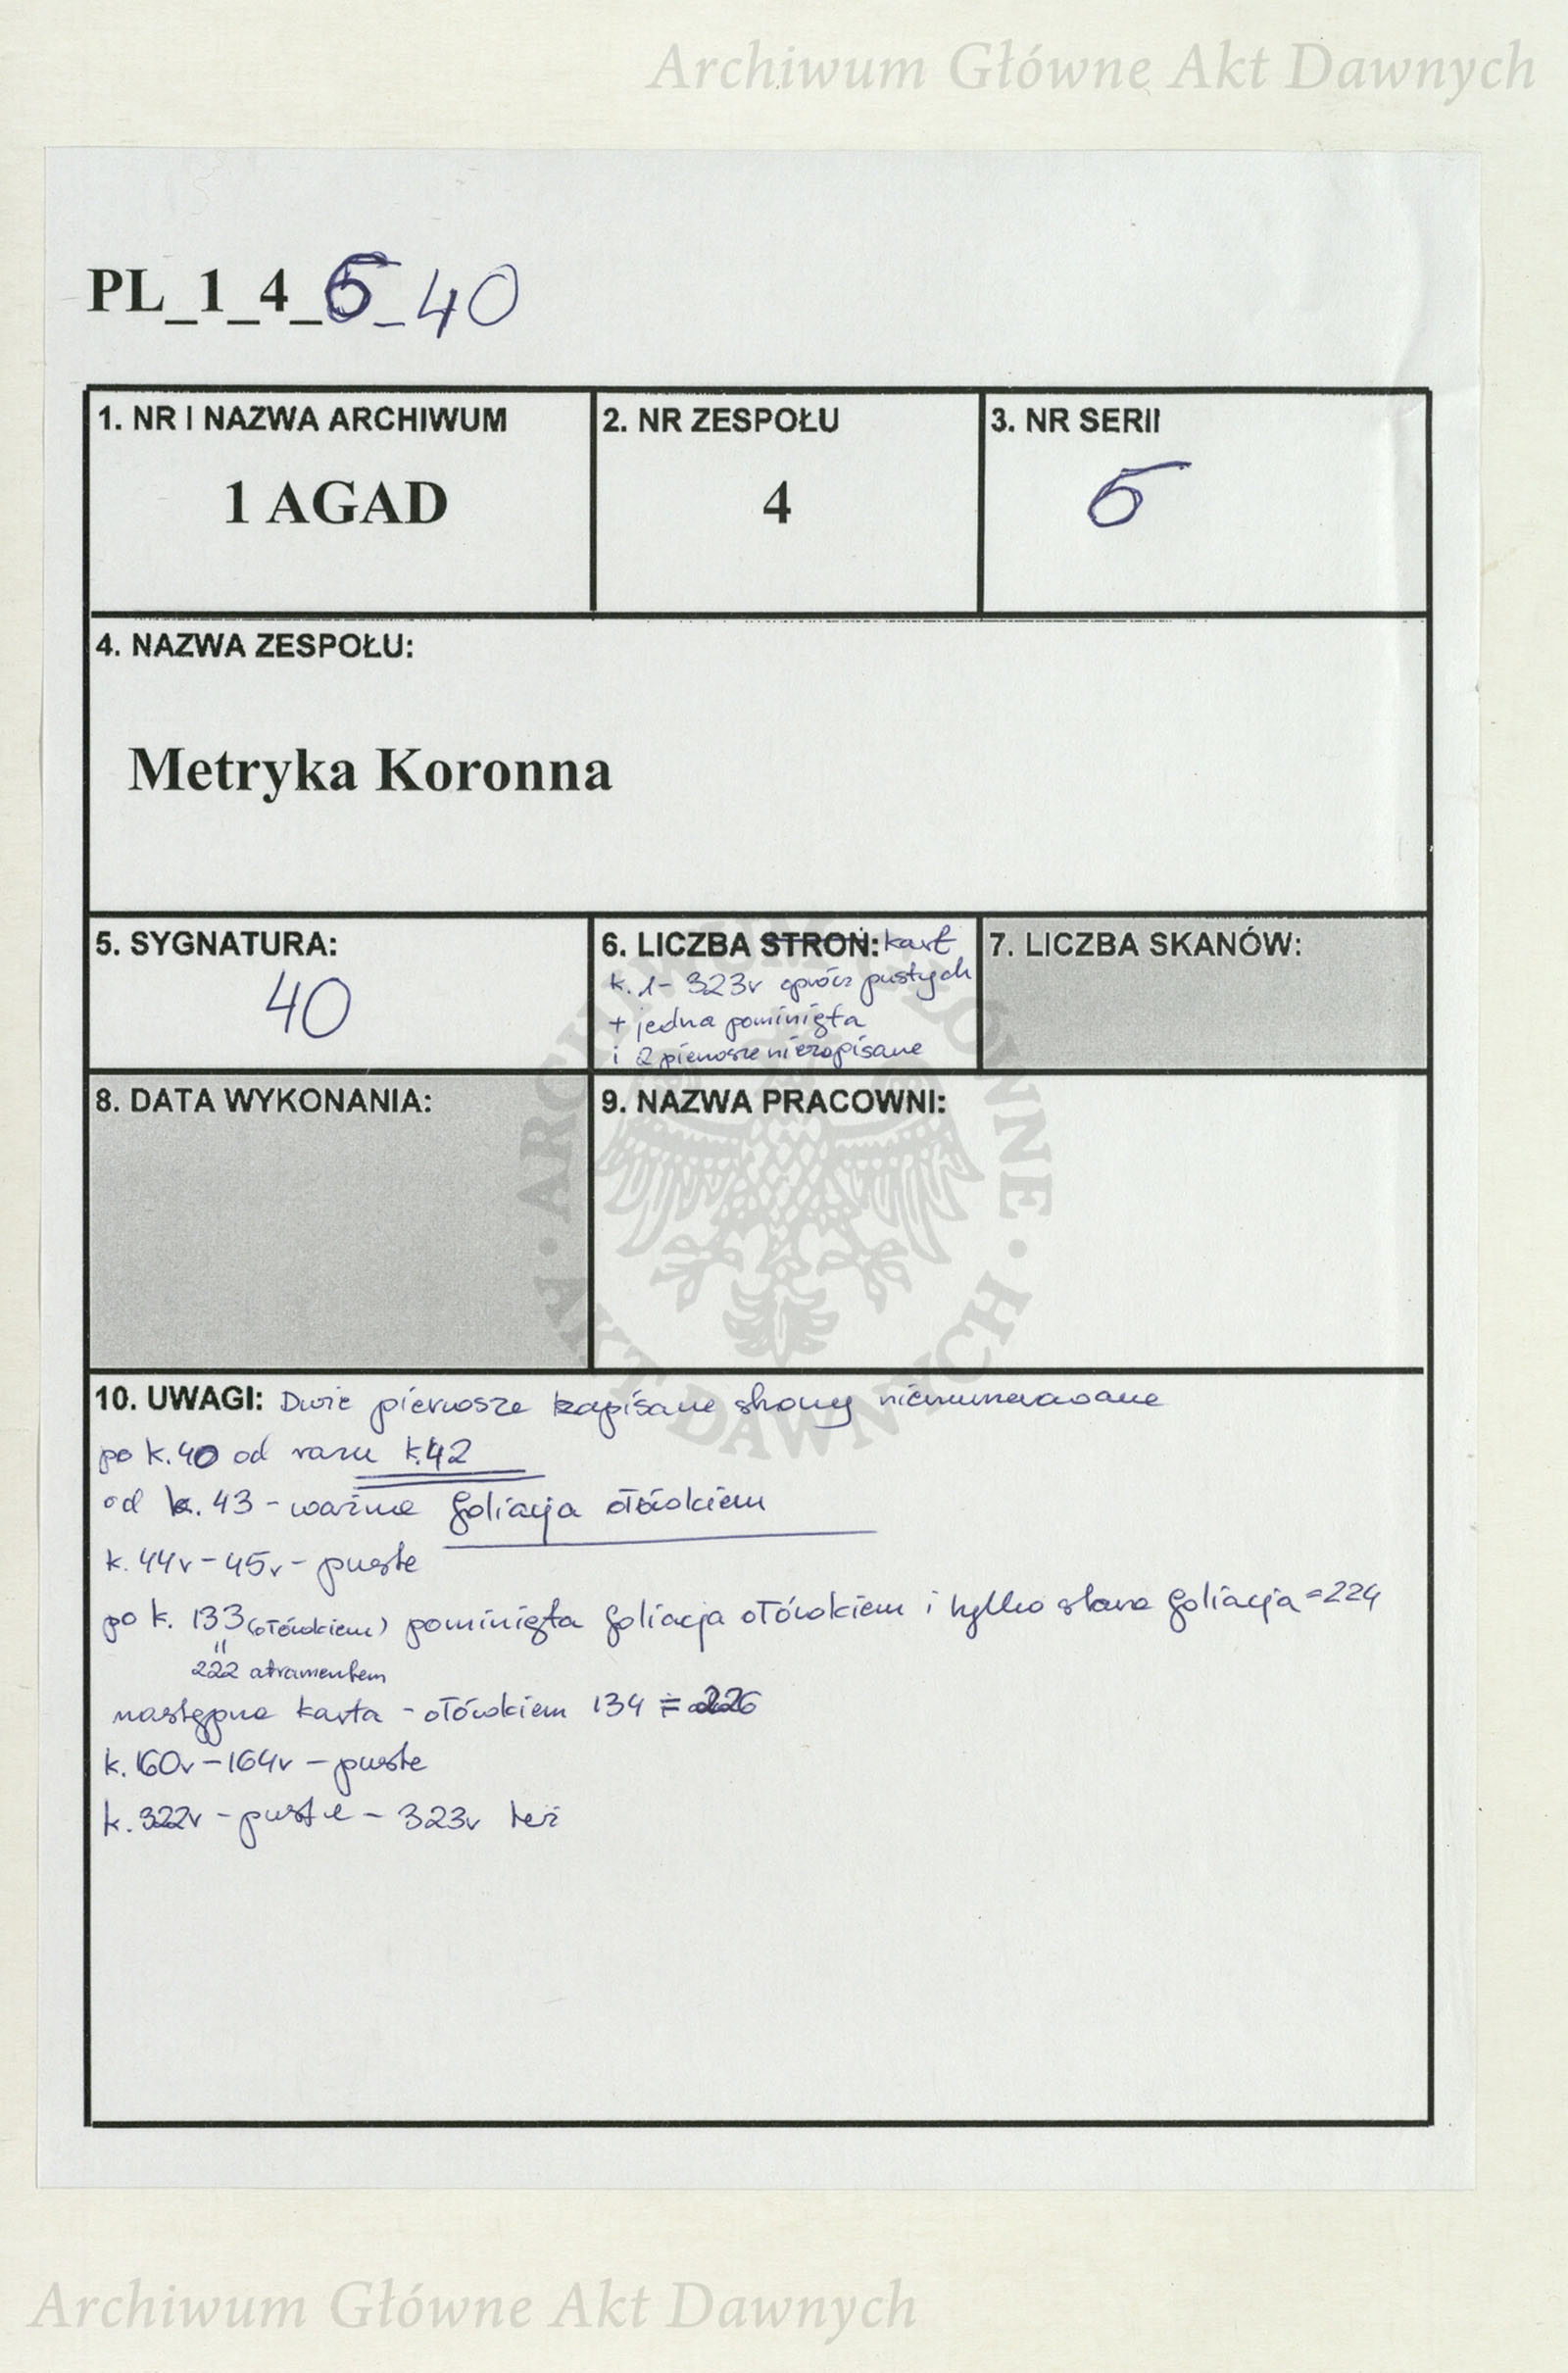 Archiwum Główne Akt Dawnych
PL_1_4_5_40
1. NR I NAZWA ARCHIWUM
1 AGAD
2. NR ZESPOŁU
4
3. NR SERII
5
4. NAZWA ZESPOŁU:
Metryka Koronna
5. SYGNATURA:
40
6. LICZBA STRON: kart
k. 1- 323v oprócz pustych
+ jedna pominięta
i 2 pierwsze niezapisane
7. LICZBA SKANÓW:
8. DATA WYKONANIA:
9. NAZWA PRACOWNI:
ARCHIWUM GŁÓWNE · AKT DAWNYCH ·
10. UWAGI: Dwie pierwsze zapisane strony nienumerowane
po k. 40 od razu k.42
od k. 43 - ważna foliacja ołówkiem
k. 44v - 45v - puste
po k. 133 (ołówkiem) pominięta foliacja ołówkiem i tylko stara foliacja = 224
"
222 atramentem
następna karta - ołówkiem 134 = 226
k. 160v - 164v - puste
k. 322v - puste - 323v też
Archiwum Główne Akt Dawnych